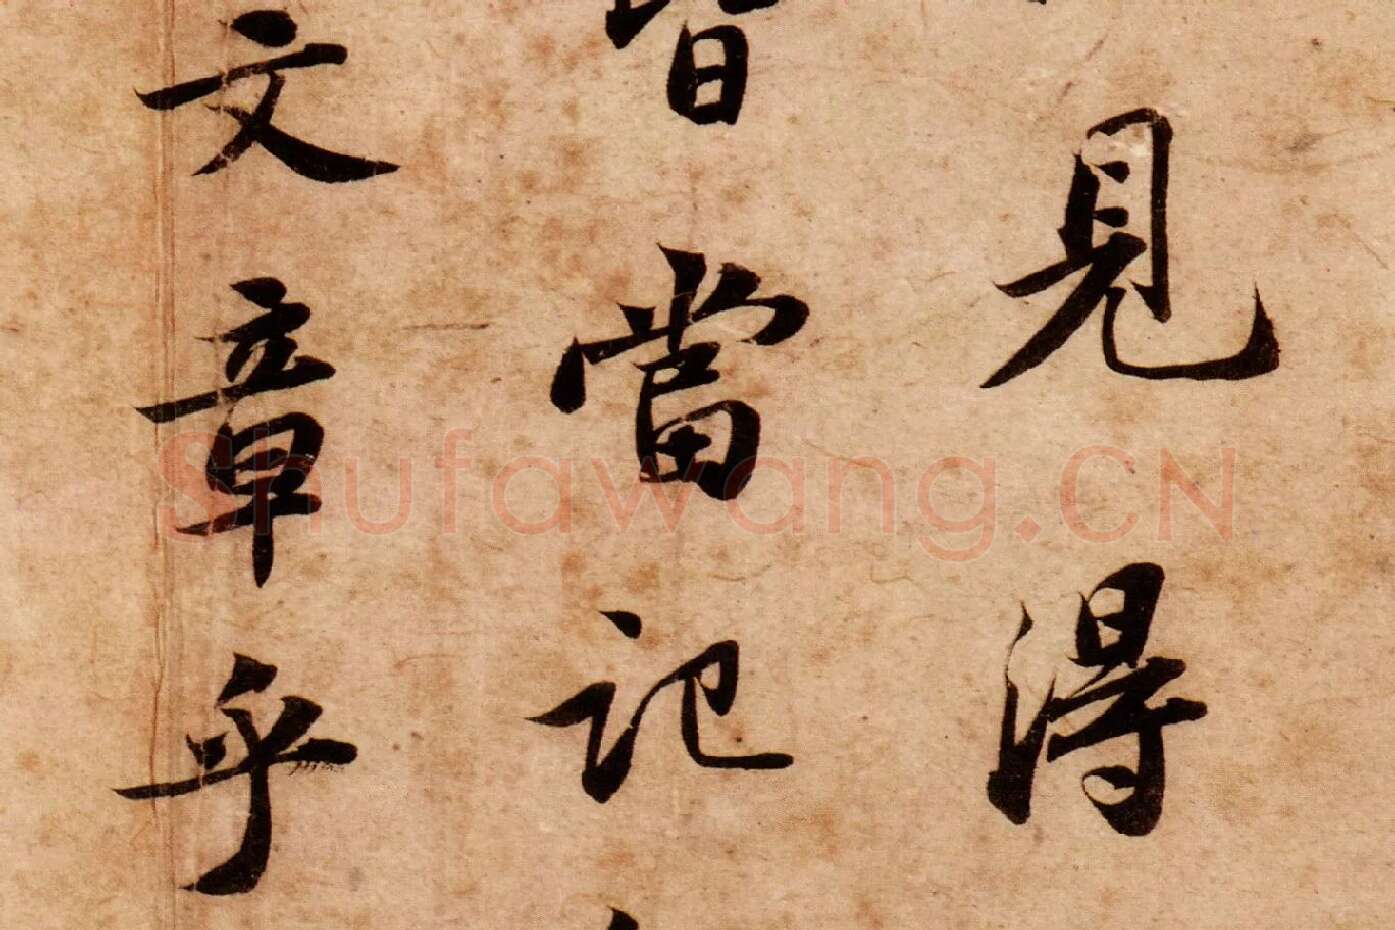 見得
皆當記
文章乎
Shufawang.CN